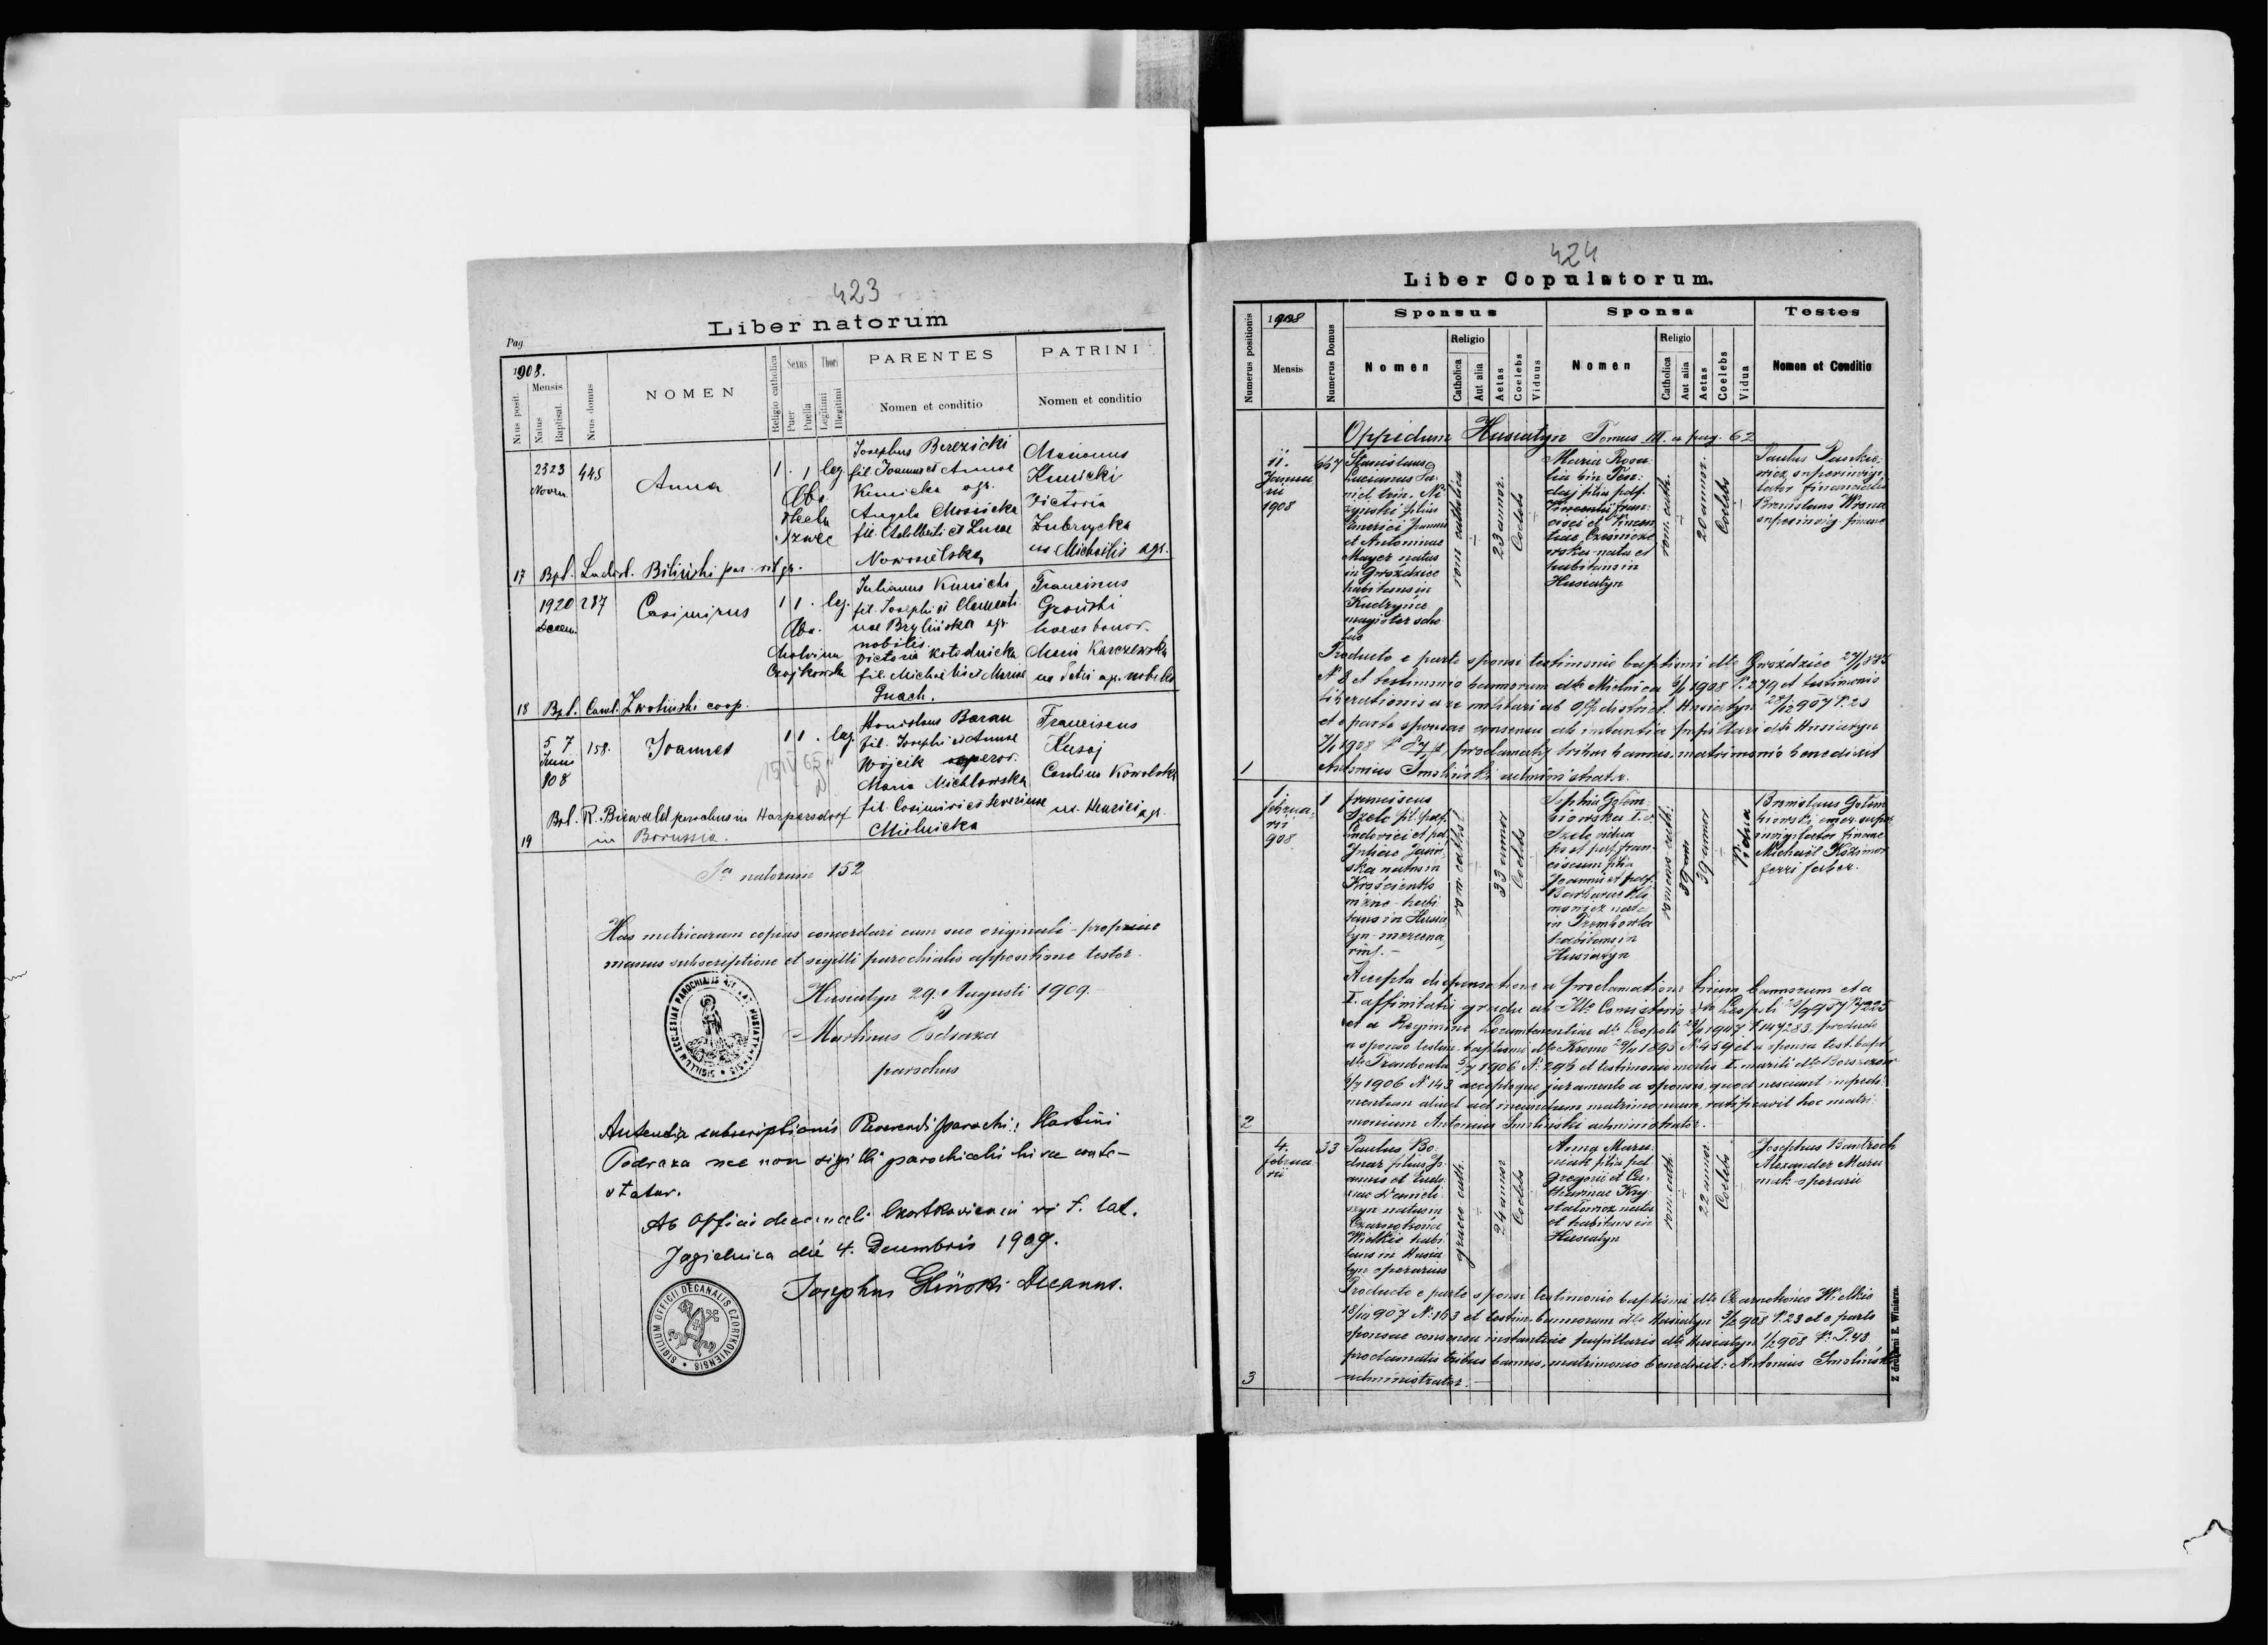 423
Liber natorum
Pag.
1908.
Nrus posit.
Mensis
Natus
Baptisat.
Nrus domus
NOMEN
Religio catholica
Sexus
Puer
Puella
Thori
Legitimi
Illegitimi
PARENTES
Nomen et conditio
PATRINI
Nomen et conditio
17
23 23
Novem.
445
Anna
1 . 1 leg.
Obs.
Thecla
Szwec
Josephus Berezicki
fil. Joannis et Annae
Kunicka agr.
Angela Mosicka
fil. Adalberti et Lucae
Nowosielska
Marianus
Kunicki
Victoria
Zubrzycka
ux. Michaelis agr.
Bpt. Ladisl. Biliński par. rit. gr.
18
19 20
Decem.
287
Casimirus
1 1 . leg.
Obs.
Malvina
Czajkowska
Julianus Kunicki
fil. Josephi et Clementi
nae Brylińska agr.
nobiles.
Victoria Kołodnicka
fil. Michaelis et Mariae
Gnach.
Francinus
Groński
haeres bonor.
Maria Karczewska
ux Petri agr. nobilis
Bpt. Carol. Zwoliński coop.
19
5 7
Junii
908
158.
Joannes
1 1 . leg.
Stanislaus Baran
fil. Josephi et Annae
Wojcik
Maria Michlowska
fil. Casimiri et Severinae
Mielnicka
Franciscus
Kusaj
Carolina Kowalska
ux. Henrici agr.
Bpt. R. Biewald parochus in Harpersdorf
in Borussia.
Sa natorum 152
Has metricarum copias concordari cum suo originali propriae
manus subscriptione et sigilli parochialis appositione testor.
Husiatyn 29. Augusti 1909.
Martinus Podraza
parochus
SIGILLUM ECCLESIAE PAROCHIALIS RIT. LAT. HUSIATYNENSIS
Autentia subscriptionis Reverendi parochi: Martini
Podraza nec non sigilli parochiali hisce conte-
statur.
Ab Officio decanali Czortkoviensi r. lat.
Jagielnica die 4. Decembris 1909.
Josephus Gliński Decanus.
SIGILLUM OFFICII DECANALIS CZORTKOVIENSIS
424
Liber Copulatorum.
Numerus positionis
1908
Mensis
Numerus Domus
Sponsus
Nomen
Religio
Catholica
Aut alia
Aetas
Coelebs
Viduus
Sponsa
Nomen
Religio
Catholica
Aut alia
Aetas
Coelebs
Vidua
Testes
Nomen et Conditio
Oppidum Husiatyn Tomus III. a pag. 62
1
11.
Janua
rii
1908
667
Stanislaus
Lucianus Da-
niel trin. Ni
zyński filius
Emerici Joannis
et Antoninae
Mayer natus
in Groździec
habitans in
Kudryńce
magister scho
lae
rom catholica
23 annor.
Coelebs
Maria Rosa
lia bin
filia pdf.
Vincentii Fran-
cisci et Vincen
tiae
natu et
habitans in
Husiatyn
rom. cath.
20 annor.
Coelebs
Paulus Paszkie-
wicz supravigi-
lator financialis
Bronislaus Wrona
supravig. financ
Producto e parte sponsi testimonio baptismi dto Groździec 27/1 885
N 8 et testimonio bannorum dto Mielnica 6/1 1908 N. 279 et testimonio
liberationis a re militari ab Off. district. Husiatyn 28/12 907 N. 20
et e parte sponsae consensu ab instantia pupillari dto Husiatyn
7/1 1908 proclamatis tribus bannis, matrimonio benedixit
Antonius Smoliński administrator.
2
1.
Februa
rii
908.
1
Franciscus
Szelc fil. pdf.
Ludovici et pd.
Juliae Jasiń
ska natus in
Krościenko
niżne habi
tans in Husia
tyn mercena
rius.
rom. cathol.
33 annor
Coelebs
Sophia Gołem
biowska I. v.
Szelc vidua
post pdf. Fran-
ciscum filia
Joannis et pdf.
Barbarae Kli
mowicz nata
in Trembowla
habitans in
Husiatyn
romano cath.
39 annor
Vidua
Bronislaus Gołem
biowski emer. supra
invigilator financ
Michael Kozimor
ferri faber.
Accepta dispensatione a proclamatione trium bannorum et a
I. affinitatis gradu ab Illo Consistorio dto Leopoli
et a Regimine Locumtenentiae dto Leopoli 1907 N 147283, producto
a sponso testim. baptismi dto Krosno 29/11 1895 N 459 et a sponsa test. bapt.
dto Trembowla 5/7 1906 N. 296 et testimonio mortis I. mariti dto Borszczów
1906 N 143 acceptoque juramento a sponsis, quod nesciunt impedi-
mentum aliud ad ineundum matrimonium, ratificavit hoc matri-
monium Antonius Smoliński administrator.
3
4.
Februa
rii
33
Paulus Bo-
dnar filius Jo
annis et Eudo
xiae Danieli
szyn natus in
Czarnokońce
Wielkie habi
tans in Husia
tyn operarius
graeco cath.
24 annor
Coelebs
Anna Maru
niak filia pd
Gregorii et Ca-
tharinae Kry
stałowicz nata
et habitans in
Husiatyn
rom. cath.
22 annor
Coelebs
Josephus Bantroch
Alexander Maru
niak operarii
Producto e parte sponsi testimonio baptismi dto Czarnokońce Wielkie
18/10 907 N. 163 et testim. bannorum dto Husiatyn 3/2 908 N. 23 et e parte
sponsae consensu instantiae pupillaris dto Husiatyn 1/2 908 N. P. 43.
proclamatis tribus bannis, matrimonio benedixit: Antonius Smoliński
administrator.
Z drukarni E. Winiarza.